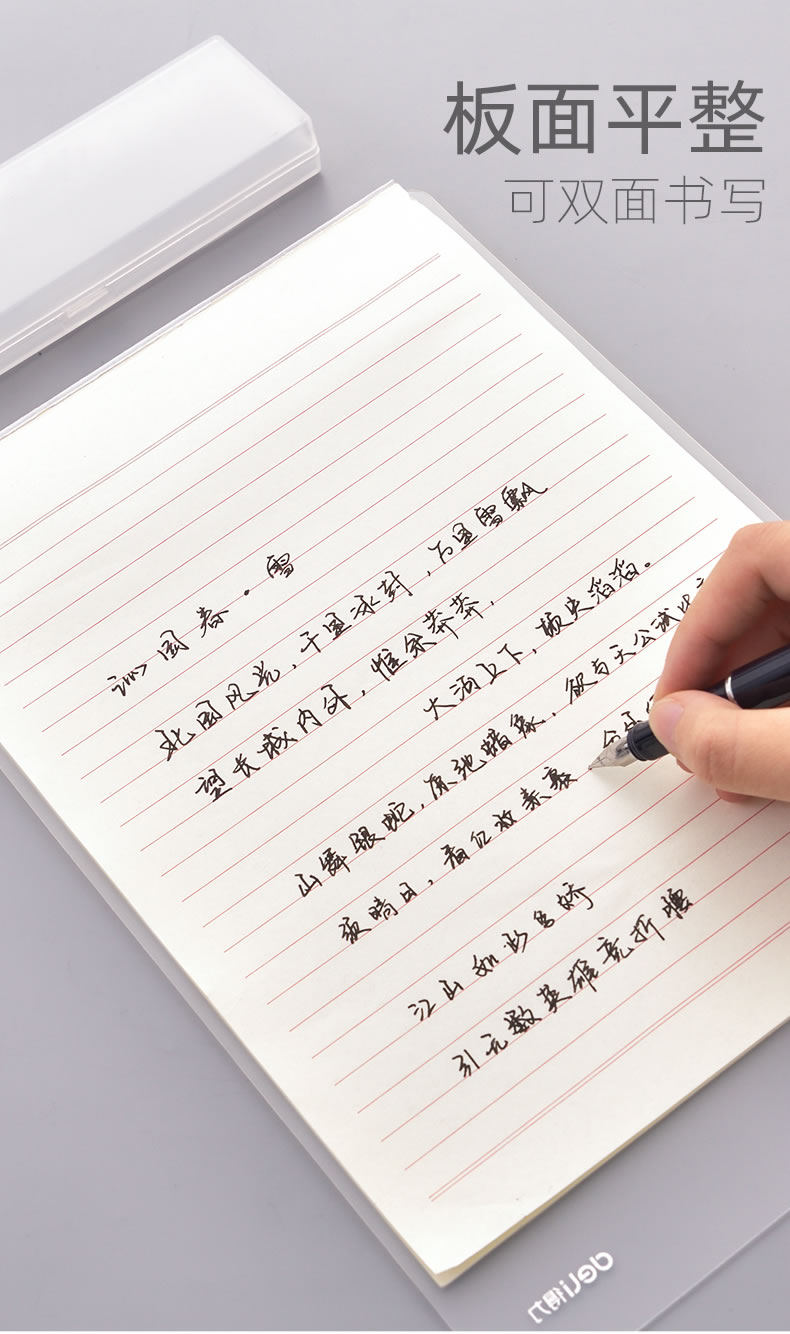 板面平整
可双面书写
沁园春·雪
北国风光,千里冰封,万里雪飘
望长城内外,惟余莽莽,
大河上下,顿失滔滔。
山舞银蛇,原驰蜡象,欲与天公试比
须晴日,看红妆素裹
江山如此多娇
引无数英雄竞折腰
deli得力